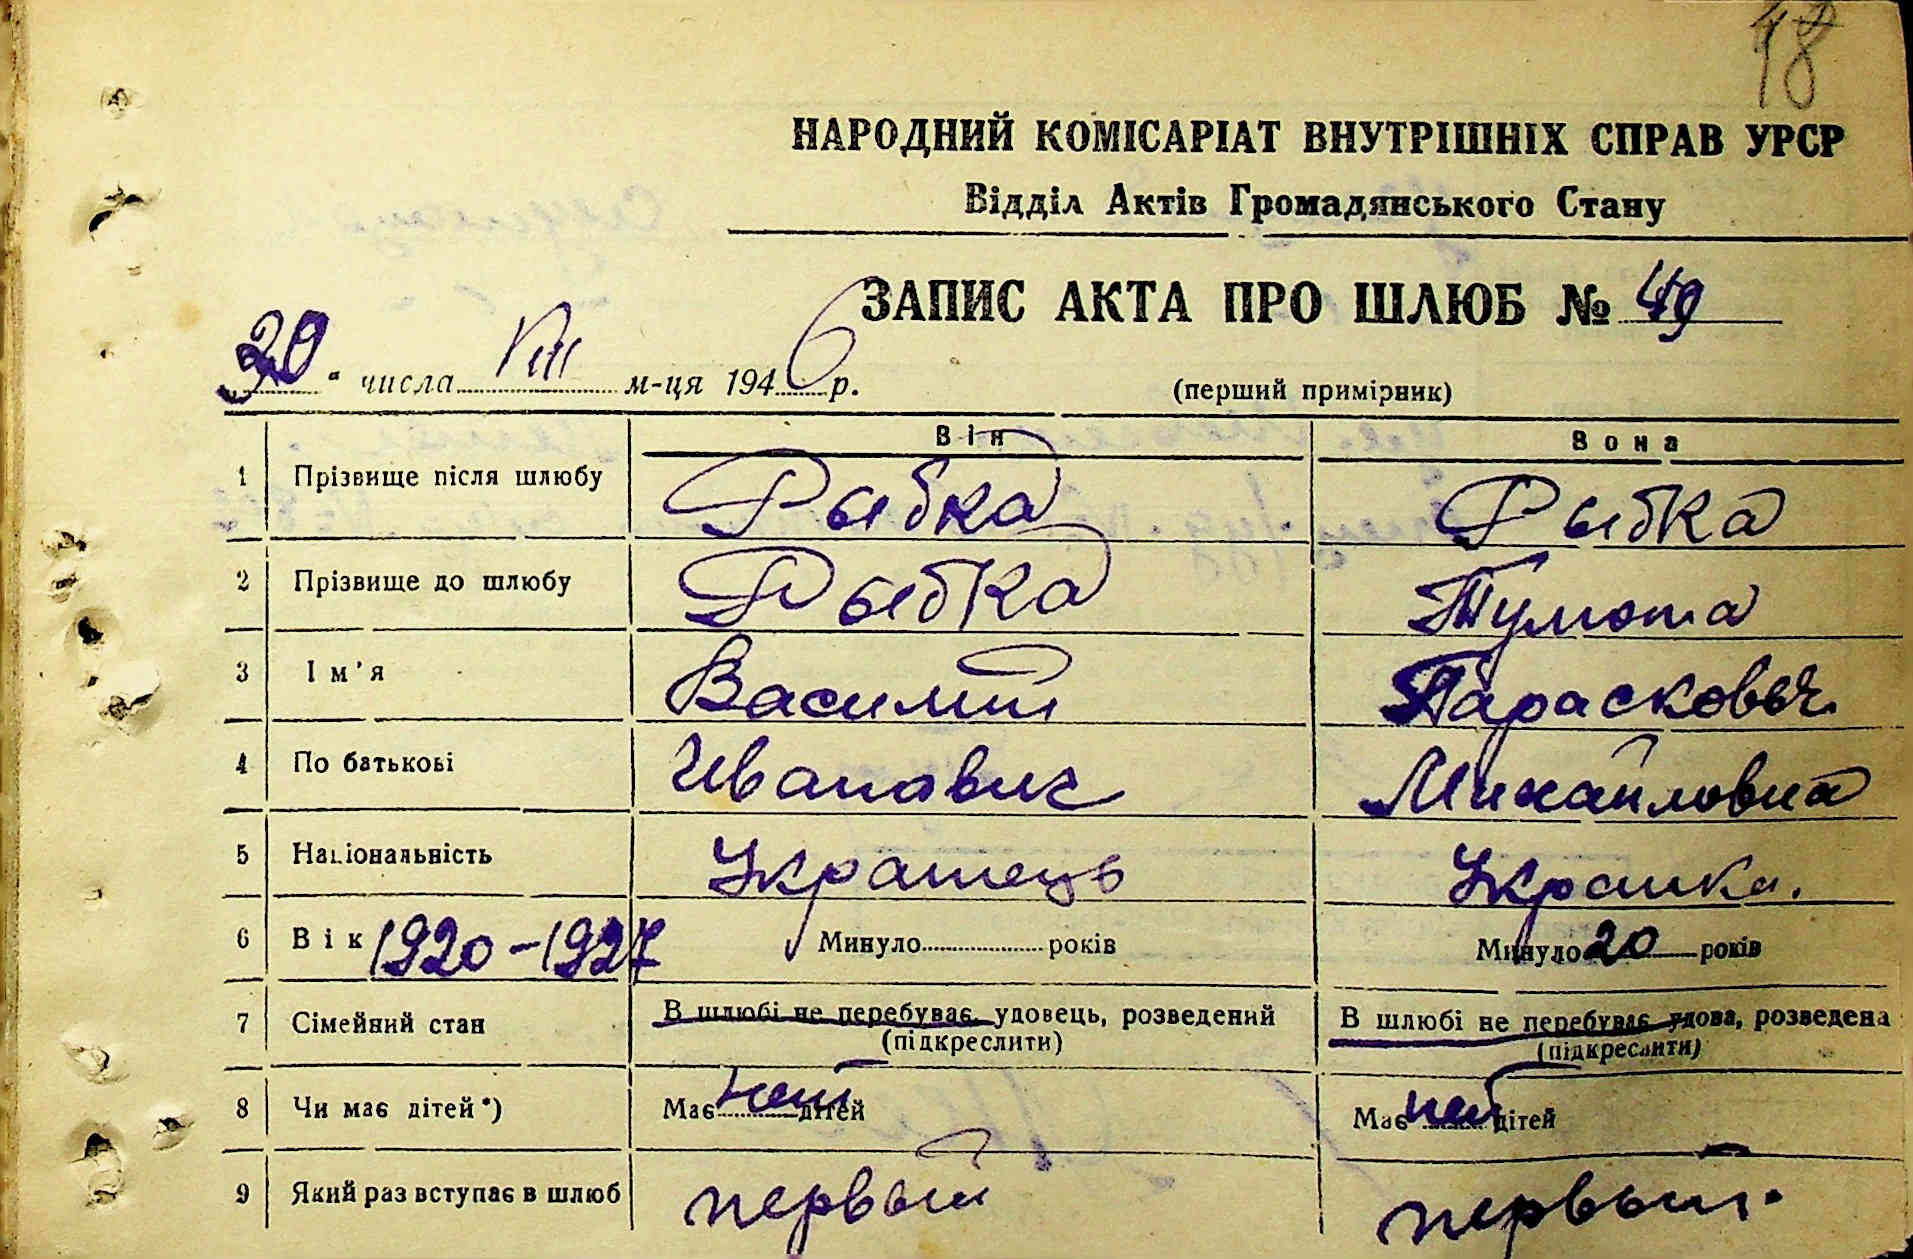 18
НАРОДНИЙ КОМІСАРІАТ ВНУТРІШНІХ СПРАВ УРСР
Відділ Актів Громадянського Стану
ЗАПИС АКТА ПРО ШЛЮБ № 49
числа VIII м-ця 1946 р.
(перший примірник)
Він Вона
1 Прізвище після шлюбу Рыбка Рыбка
2 Прізвище до шлюбу Рыбка
3 Ім'я Василий Парасковья
4 По батькові Иванович Михайловна
5 Національність Украінець Украінка.
6 Вік 1920-1927 Минуло років Минуло 20 років
7 Сімейний стан В шлюбі не перебуває, удовець, розведений В шлюбі не перебуває, удова, розведена
(підкреслити) (підкреслити)
8 Чи має дітей*) Має нет дітей Має нет дітей
9 Який раз вступає в шлюб первый первый.